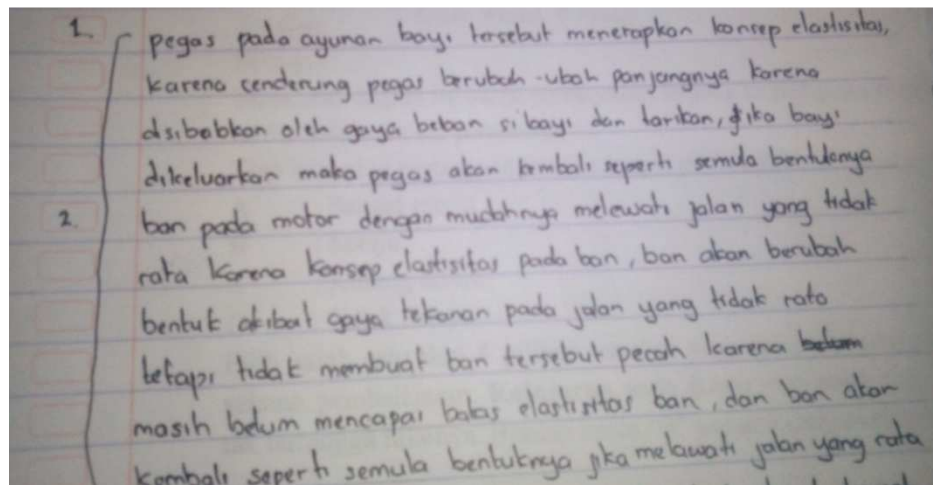 1. pegas pada ayunan bayi tersebut menerapkan konsep elastisitas,
karena cenderung pegas berubah-ubah panjangnya karena
disibabkan oleh gaya beban si bayi dan tarikan, jika bayi
dikeluarkan maka pegas akan kembali seperti semula bentuknya
2. ban pada motor dengan mudahnya melewati jalan yang tidak
rata karena konsep elastisitas pada ban, ban akan berubah
bentuk akibat gaya tekanan pada jalan yang tidak rata
tetapi tidak membuat ban tersebut pecah karena
masih belum mencapai batas elastisitas ban, dan ban akan
kembali seperti semula bentuknya jika melawati jalan yang rata